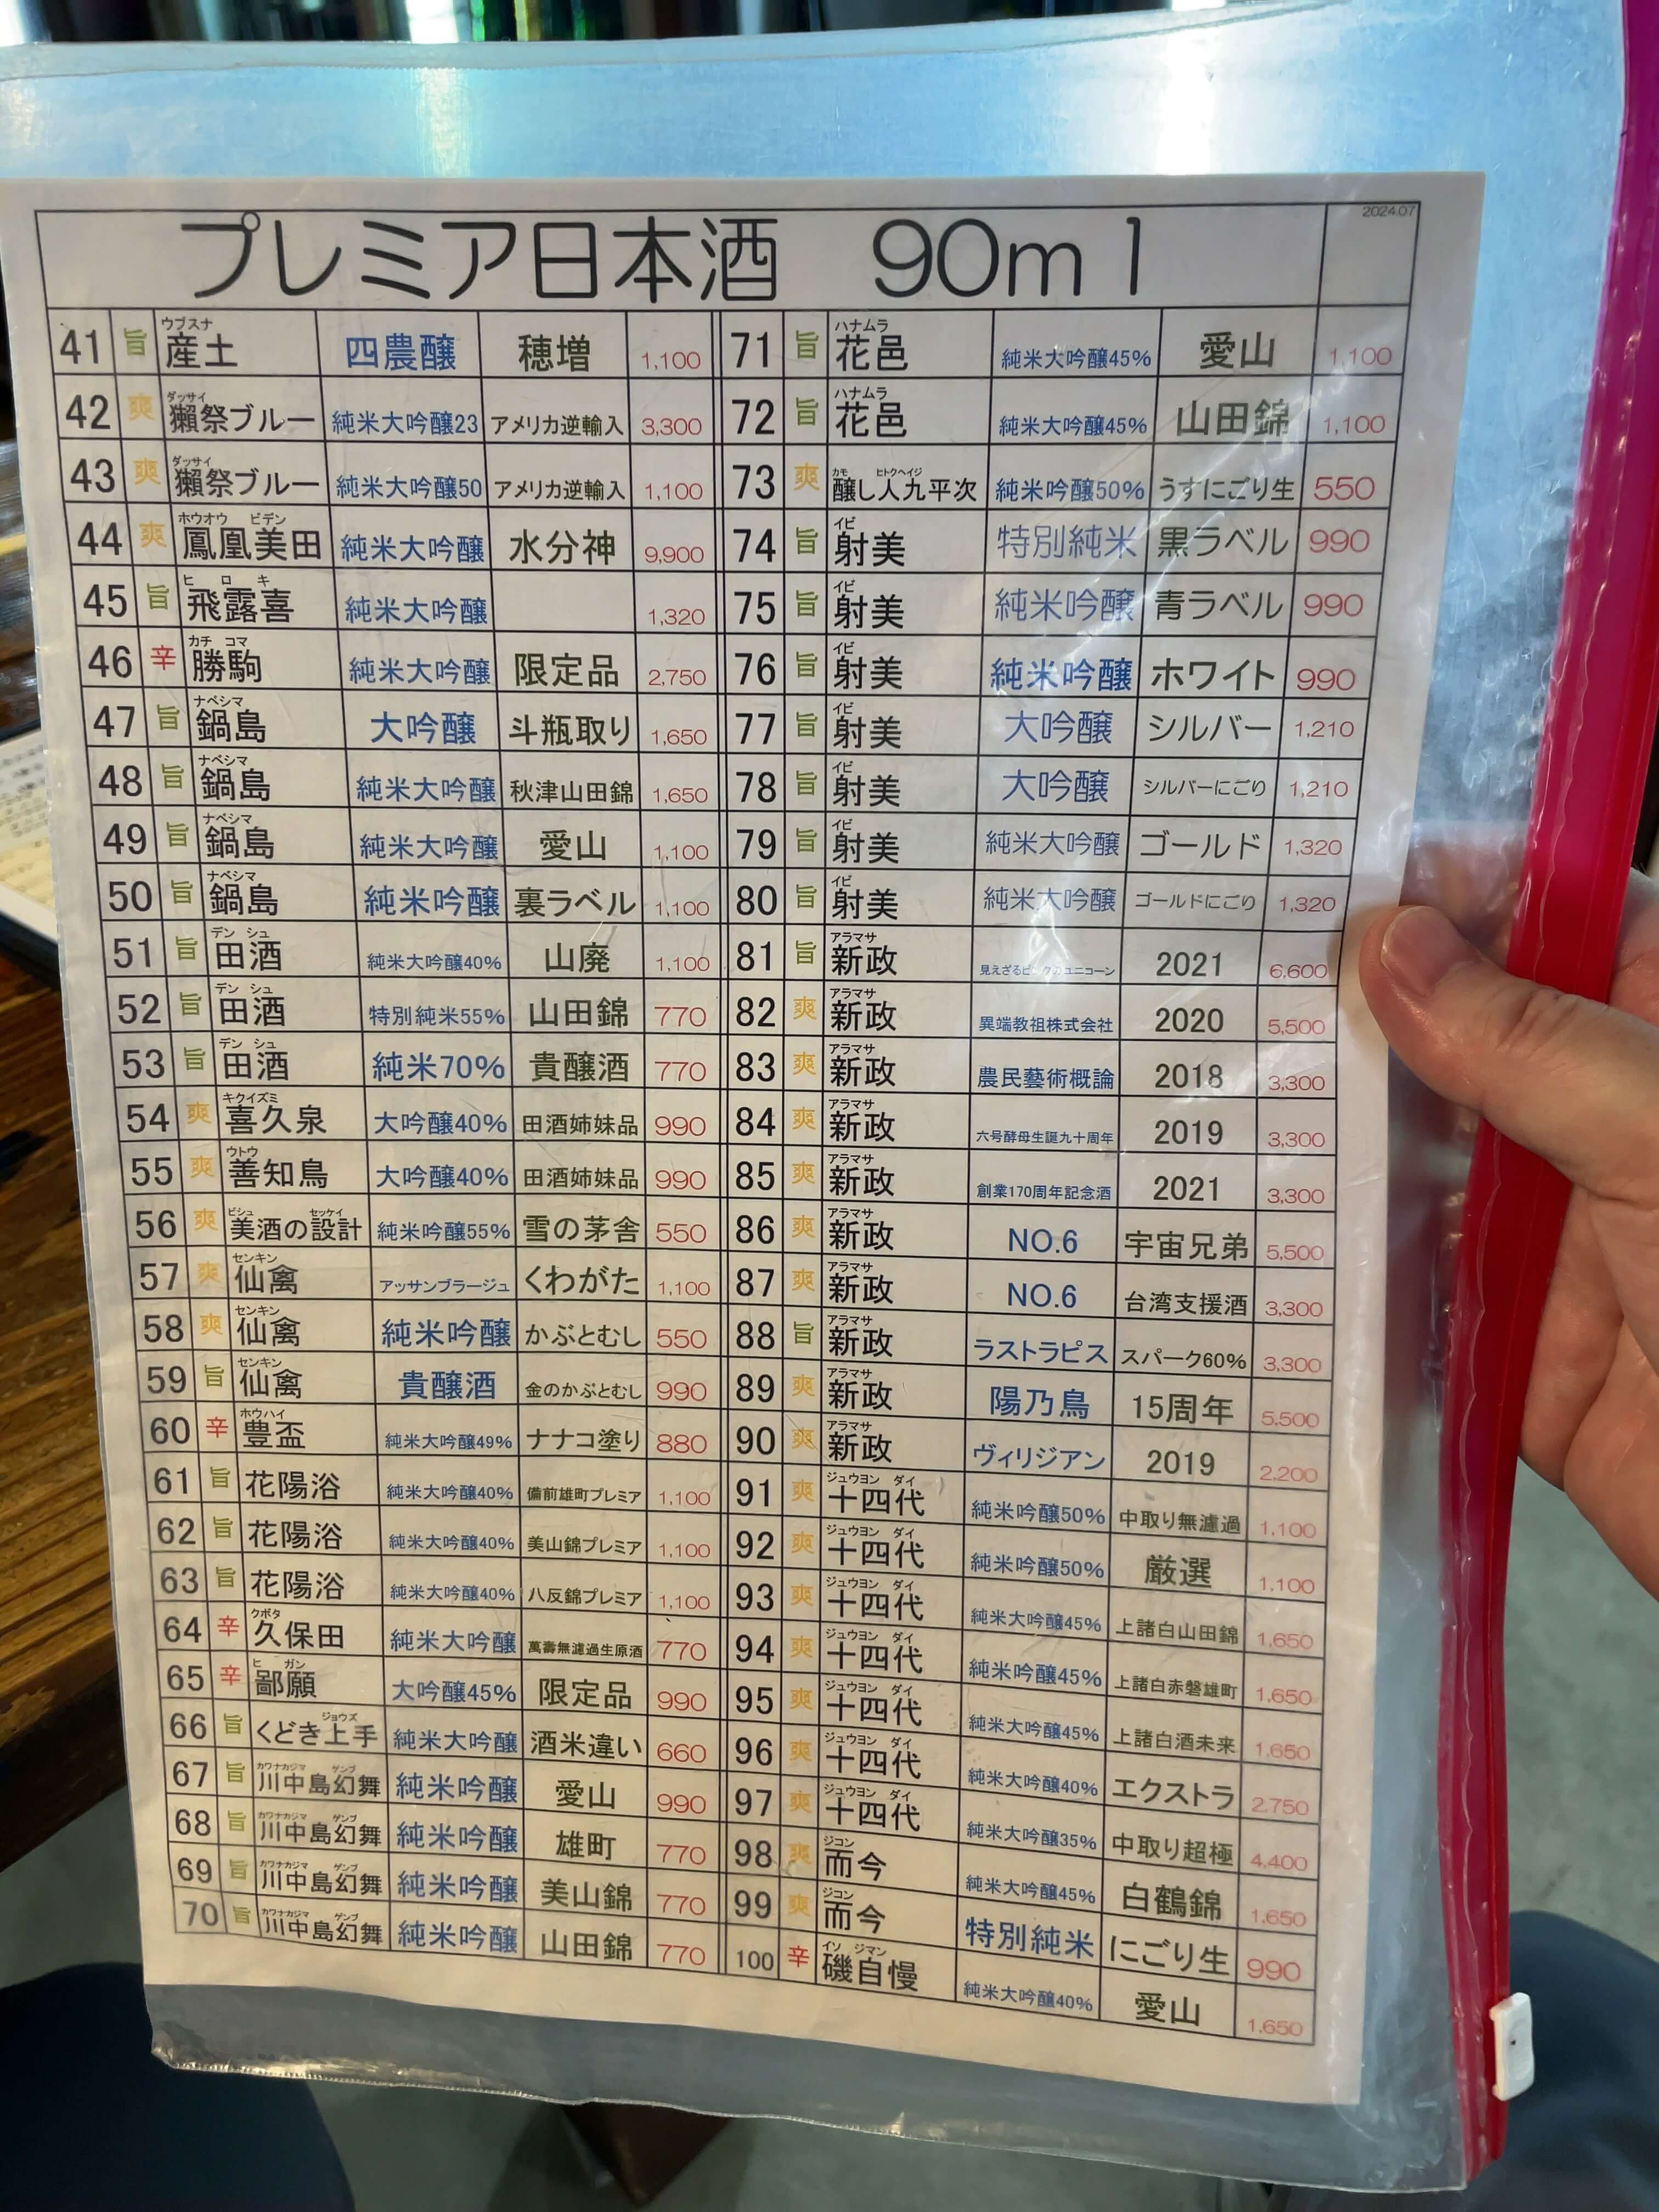 2024.07
プレミア日本酒 90ml
41 旨 産土 ウブスナ 四農醸 穂増 1,100
42 爽 獺祭ブルー ダッサイ 純米大吟醸23 アメリカ逆輸入 3,300
43 爽 獺祭ブルー ダッサイ 純米大吟醸50 アメリカ逆輸入 1,100
44 爽 鳳凰美田 ホウオウ ビデン 純米大吟醸 水分神 9,900
45 旨 飛露喜 ヒ ロ キ 純米大吟醸 1,320
46 辛 勝駒 カチ コマ 純米大吟醸 限定品 2,750
47 旨 鍋島 ナベシマ 大吟醸 斗瓶取り 1,650
48 旨 鍋島 ナベシマ 純米大吟醸 秋津山田錦 1,650
49 旨 鍋島 ナベシマ 純米大吟醸 愛山 1,100
50 旨 鍋島 ナベシマ 純米吟醸 裏ラベル 1,100
51 旨 田酒 デン シュ 純米大吟醸40% 山廃 1,100
52 旨 田酒 デン シュ 特別純米55% 山田錦 770
53 旨 田酒 デン シュ 純米70% 貴醸酒 770
54 爽 喜久泉 キクイズミ 大吟醸40% 田酒姉妹品 990
55 爽 善知鳥 ウトウ 大吟醸40% 田酒姉妹品 990
56 爽 美酒の設計 ビシュ セッケイ 純米吟醸55% 雪の茅舎 550
57 爽 仙禽 センキン アッサンブラージュ くわがた 1,100
58 爽 仙禽 センキン 純米吟醸 かぶとむし 550
59 旨 仙禽 センキン 貴醸酒 金のかぶとむし 990
60 辛 豊盃 ホウハイ 純米大吟醸49% ナナコ塗り 880
61 旨 花陽浴 純米大吟醸40% 備前雄町プレミア 1,100
62 旨 花陽浴 純米大吟醸40% 美山錦プレミア 1,100
63 旨 花陽浴 純米大吟醸40% 八反錦プレミア 1,100
64 辛 久保田 クボタ 純米大吟醸 萬壽無濾過生原酒 770
65 辛 鄙願 ヒ ガン 大吟醸45% 限定品 990
66 旨 くどき上手 ジョウズ 純米大吟醸 酒米違い 660
67 旨 川中島幻舞 カワナカジマ ゲンブ 純米吟醸 愛山 990
68 旨 川中島幻舞 カワナカジマ ゲンブ 純米吟醸 雄町 770
69 旨 川中島幻舞 カワナカジマ ゲンブ 純米吟醸 美山錦 770
70 旨 川中島幻舞 カワナカジマ ゲンブ 純米吟醸 山田錦 770
71 旨 花邑 ハナムラ 純米大吟醸45% 愛山 1,100
72 旨 花邑 ハナムラ 純米大吟醸45% 山田錦 1,100
73 爽 醸し人九平次 カモ ヒトクヘイジ 純米吟醸50% うすにごり生 550
74 旨 射美 イビ 特別純米 黒ラベル 990
75 旨 射美 イビ 純米吟醸 青ラベル 990
76 旨 射美 イビ 純米吟醸 ホワイト 990
77 旨 射美 イビ 大吟醸 シルバー 1,210
78 旨 射美 イビ 大吟醸 シルバーにごり 1,210
79 旨 射美 イビ 純米大吟醸 ゴールド 1,320
80 旨 射美 イビ 純米大吟醸 ゴールドにごり 1,320
81 旨 新政 アラマサ 見えざるピンクのユニコーン 2021 6,600
82 爽 新政 アラマサ 異端教祖株式会社 2020 5,500
83 爽 新政 アラマサ 農民藝術概論 2018 3,300
84 爽 新政 アラマサ 六号酵母生誕九十周年 2019 3,300
85 爽 新政 アラマサ 創業170周年記念酒 2021 3,300
86 爽 新政 アラマサ NO.6 宇宙兄弟 5,500
87 爽 新政 アラマサ NO.6 台湾支援酒 3,300
88 旨 新政 アラマサ ラストラピス スパーク60% 3,300
89 爽 新政 アラマサ 陽乃鳥 15周年 5,500
90 爽 新政 アラマサ ヴィリジアン 2019 2,200
91 爽 十四代 ジュウヨン ダイ 純米吟醸50% 中取り無濾過 1,100
92 爽 十四代 ジュウヨン ダイ 純米吟醸50% 厳選 1,100
93 爽 十四代 ジュウヨン ダイ 純米大吟醸45% 上諸白山田錦 1,650
94 爽 十四代 ジュウヨン ダイ 純米吟醸45% 上諸白赤磐雄町 1,650
95 爽 十四代 ジュウヨン ダイ 純米大吟醸45% 上諸白酒未来 1,650
96 爽 十四代 ジュウヨン ダイ 純米大吟醸40% エクストラ 2,750
97 爽 十四代 ジュウヨン ダイ 純米大吟醸35% 中取り超極 4,400
98 爽 而今 ジコン 純米大吟醸45% 白鶴錦 1,650
99 爽 而今 ジコン 特別純米 にごり生 990
100 辛 磯自慢 イソ ジマン 純米大吟醸40% 愛山 1,650